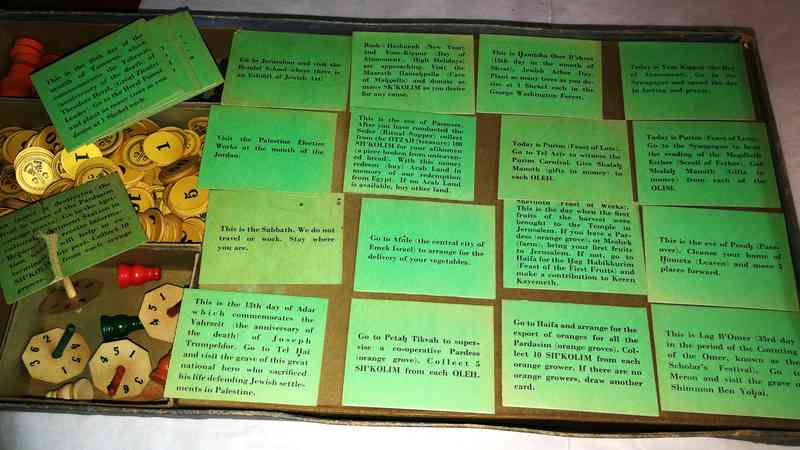 This is the 20th day of the
month of Tammuz, which
Go to Jerusalem and visit the
Bezalel School where there is
an Exhibit of Jewish Art.
Rosh-Hashanah (New Year)
and Yom-Kippur (Day of
Atonement), High Holidays
are approaching. Visit the
Maarath Hamachpella (Cave
of Malpella) and donate as
many SH'KOLIM as you desire
for any cause.
This is Hamisha Oser B'shvat
(15th day in the month of
Shvat), Jewish Arbor Day.
Plant as many trees as you de-
sire at 1 Shekel each in the
George Washington Forest.
Today is Yom Kippur (the Day
of Atonement). Go to the
Synagogue and spend the day
in fasting and prayer.
Visit the Palestine Electric
Works at the mouth of the
Jordan.
This is the eve of Passover.
After you have conducted the
Seder (Ritual Supper) collect
from the OTZAR (treasury) 100
SH'KOLIM for your afikomen
(a piece broken from unleaven-
ed bread). With this money
redeem (buy) Arab Land in
memory of our redemption
from Egypt. If no Arab Land
is available, buy other land.
Today is Purim (Feast of Lots).
Go to Tel Aviv to witness the
Purim Carnival. Give Shalaḥ
Manoth (gifts in money) to
each OLEH.
Today is Purim (Feast of Lots).
Go to the Synagogue to hear
the reading of the Megillath
Esther (Scroll of Esther). Get
Shalaḥ Manoth (Gifts in
money) from each of the
OLIM.
This is the Sabbath. We do not
travel or work. Stay where
you are.
Go to Afule (the central city of
Emek Israel) to arrange for the
delivery of your vegetables.
Shevuoth (Feast of Weeks).
This is the day when the first
fruits of the harvest were
brought to the Temple in
Jerusalem. If you have a Par-
dess (orange grove), or Meshek
(farm), bring your first fruits
to Jerusalem. If not, go to
Haifa for the Ḥag Habikkurim
(Feast of the First Fruits) and
make a contribution to Keren
Kayemeth.
This is the eve of Pesaḥ (Pass-
over). Cleanse your home of
Ḥometz (Leaven) and move 5
places forward.
This is the 13th day of Adar
which commemorates the
Yahrzeit (the anniversary of
the death) of Joseph
Trumpeldor. Go to Tel Ḥai
and visit the grave of this great
national hero who sacrificed
his life defending Jewish settle-
ments in Palestine.
Go to Petaḥ Tikvah to super-
vise a co-operative Pardess
(orange grove). Collect 5
SH'KOLIM from each OLEH.
Go to Haifa and arrange for the
export of oranges for all the
Pardasim (orange groves). Col-
lect 10 SH'KOLIM from each
orange grower. If there are no
orange growers, draw another
card.
This is Lag B'Omer (33rd day
in the period of the Counting
of the Omer, known as the
Scholar's Festival). Go to
Meron and visit the grave of
Shimmon Ben Yoḥai.
1
1
5